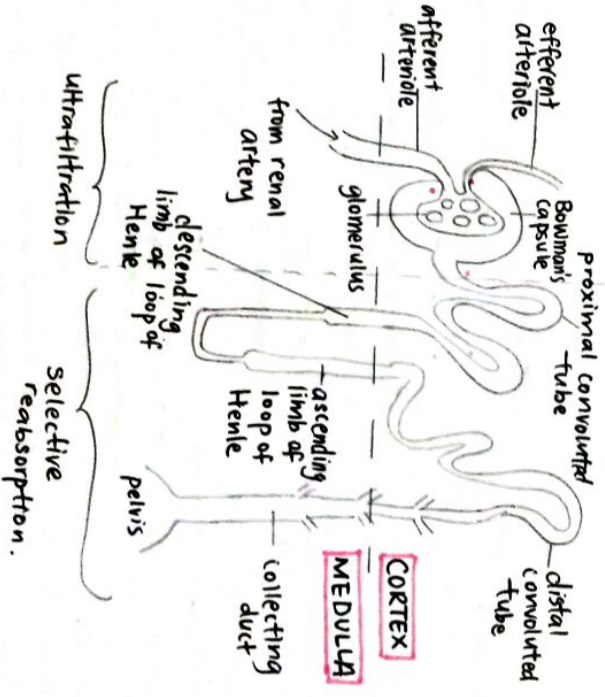 efferent
arteriole
afferent
arteriole
from renal
artery
Bowman's
capsule
glomerulus
proximal convoluted
tube
descending
limb of loop of
Henle
ascending
limb of
loop of
Henle
distal
convoluted
tube
CORTEX
MEDULLA
collecting
duct
pelvis
ultrafiltration
selective
reabsorption.